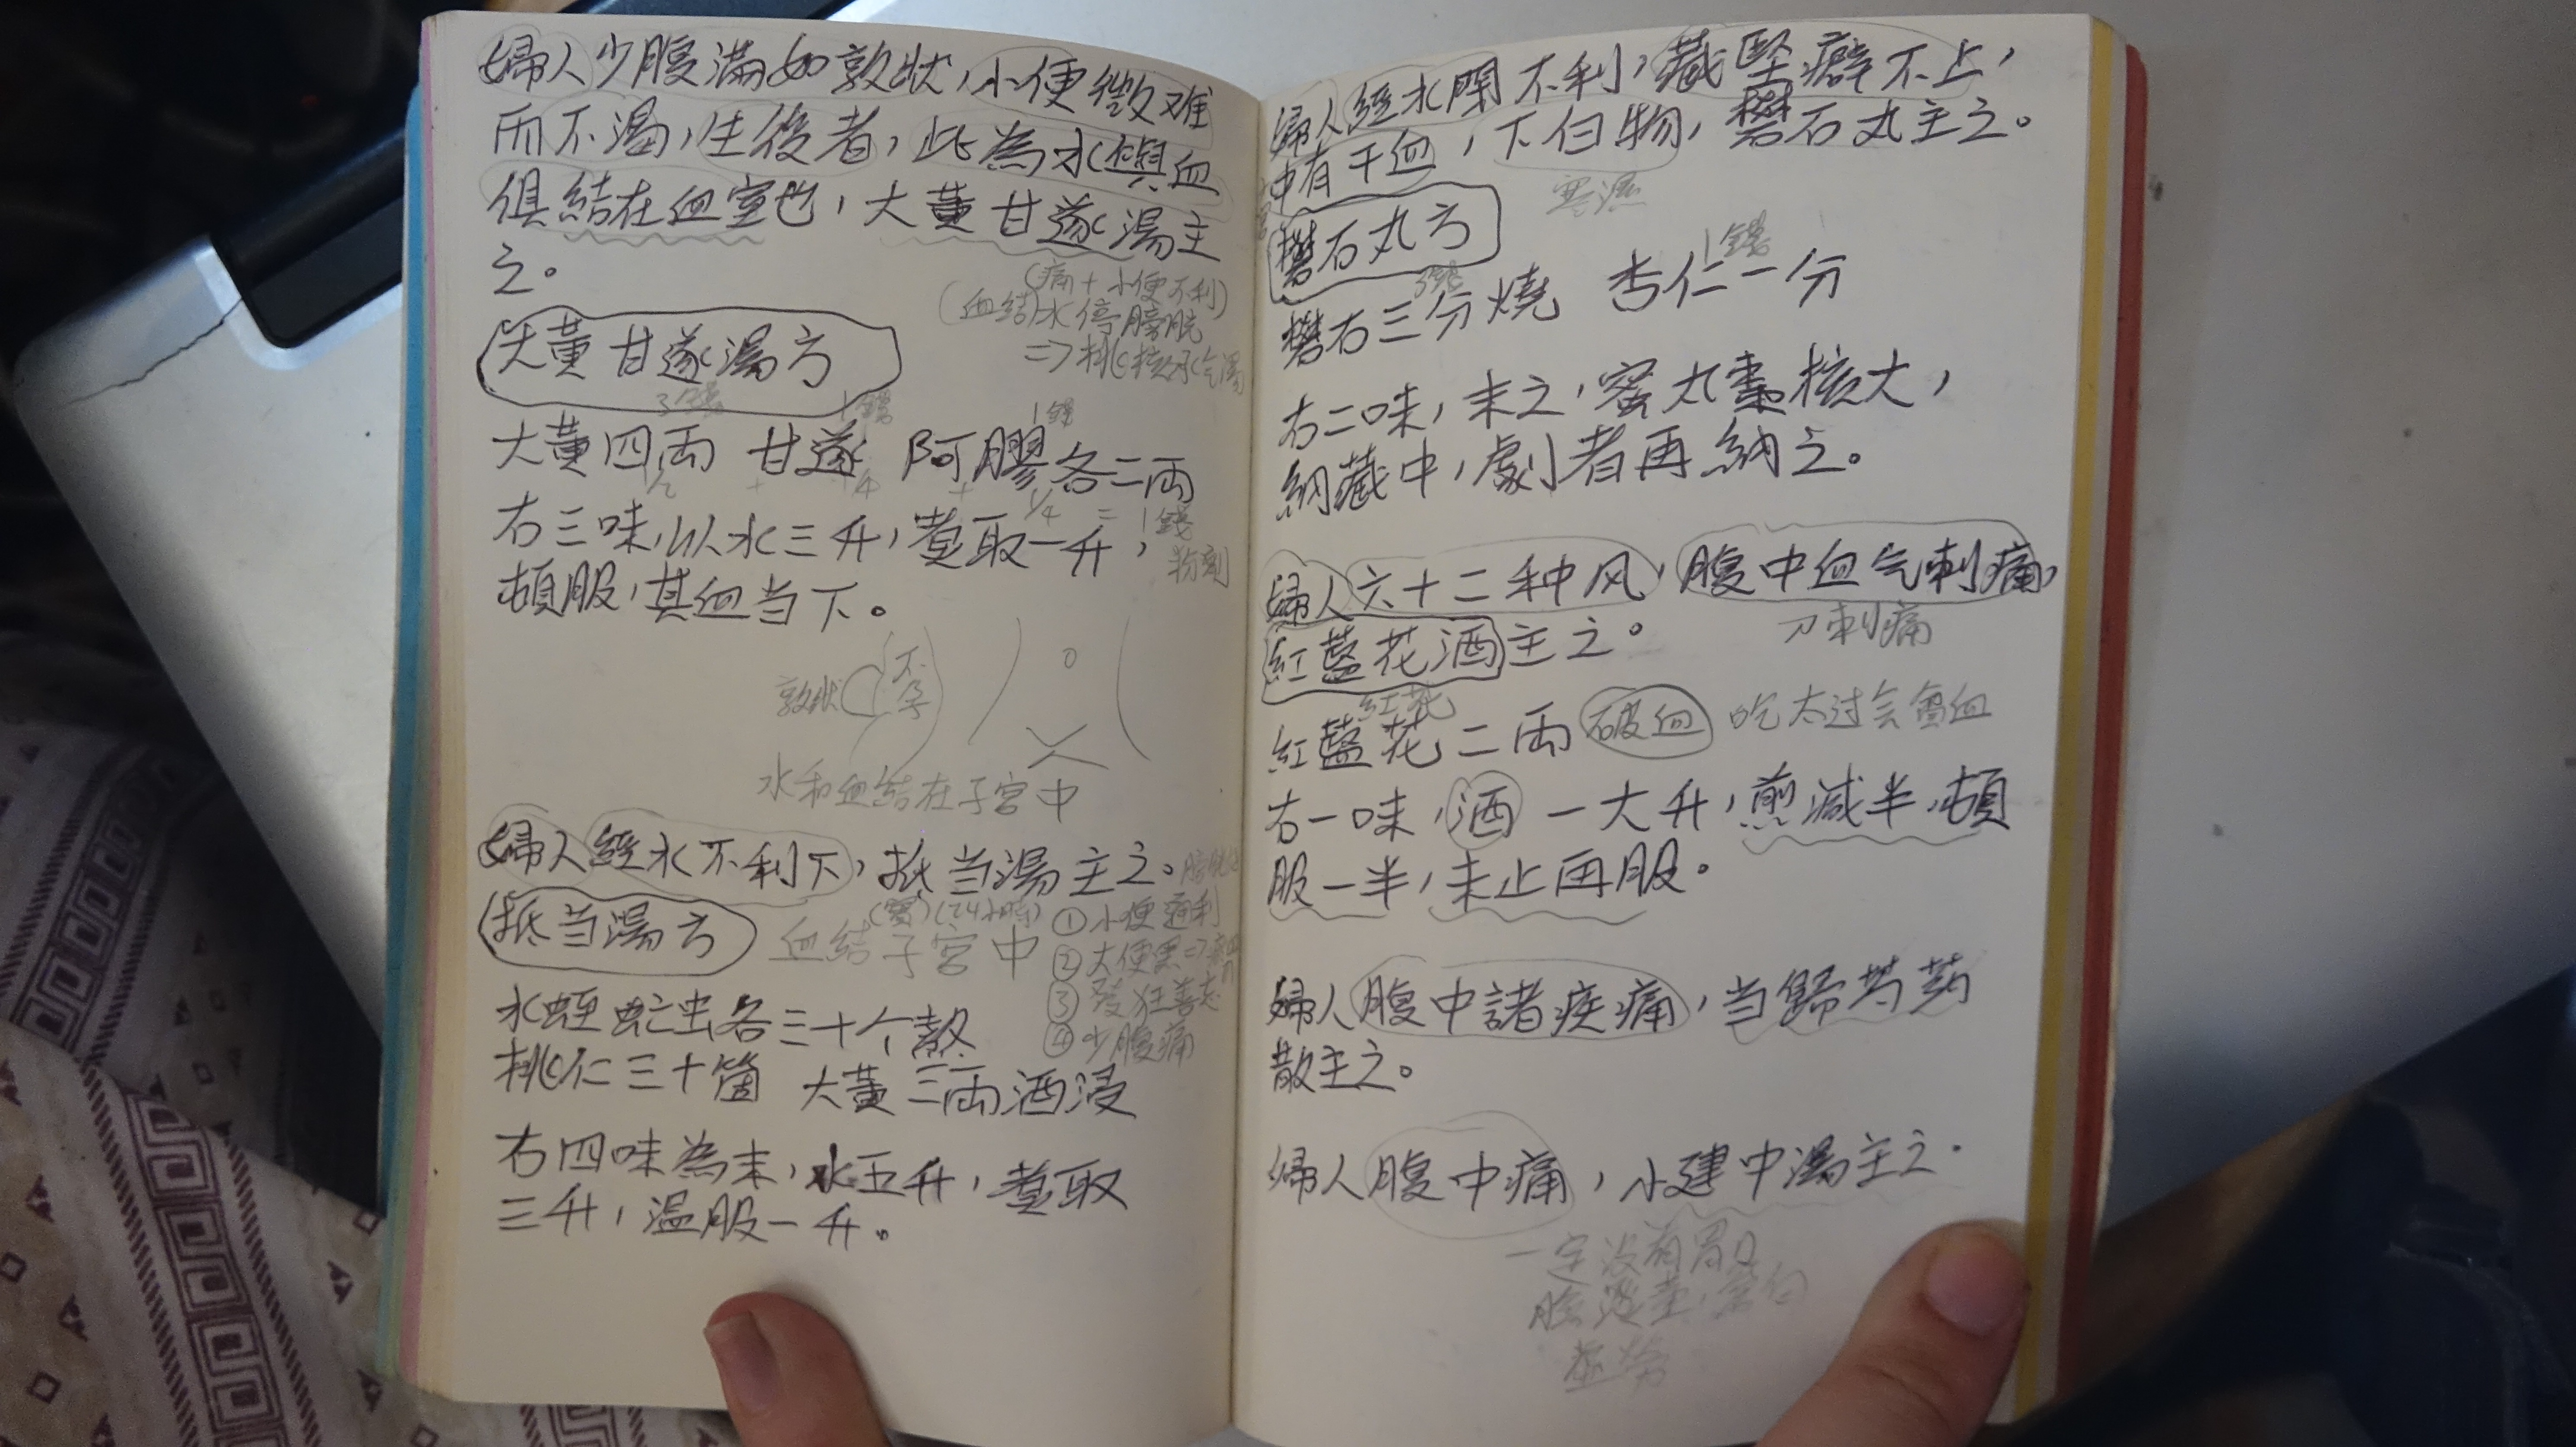 婦人少腹滿如敦狀，小便微难
而不渴，生後者，此為水與血
俱結在血室也，大黃甘遂湯主
之。
(痛+小便不利)
(血結)水停膀胱
=>桃核承气湯
大黃甘遂湯方
3錢 1錢 1錢
大黃四両 甘遂 阿膠各二両
右三味，以水三升，煮取一升，
1錢
頓服，其血当下。
敦狀
不孕
水和血結在子宮中
婦人經水不利下，抵当湯主之。
抵当湯方
血結子宮中
(24小時)
①小便通利
②大便黑=>
③發狂善忘
④少腹痛
水蛭虻虫各三十个熬
桃仁三十箇 大黃三両酒浸
右四味為末，水五升，煮取
三升，溫服一升。
婦人經水閉不利，藏堅癖不止，
中有干血，下白物，礬石丸主之。
寒濕
礬石丸方
3錢 1錢
礬石三分燒 杏仁一分
右二味，末之，蜜丸棗核大，
納藏中，劇者再納之。
婦人六十二种风，腹中血气刺痛，
刀刺痛
紅蓝花酒主之。
紅花
紅蓝花二両 破血 吃太过会
右一味，酒一大升，煎減半，頓
服一半，未止再服。
婦人腹中諸疾痛，当歸芍药
散主之。
婦人腹中痛，小建中湯主之.
一定没有胃口
虛勞